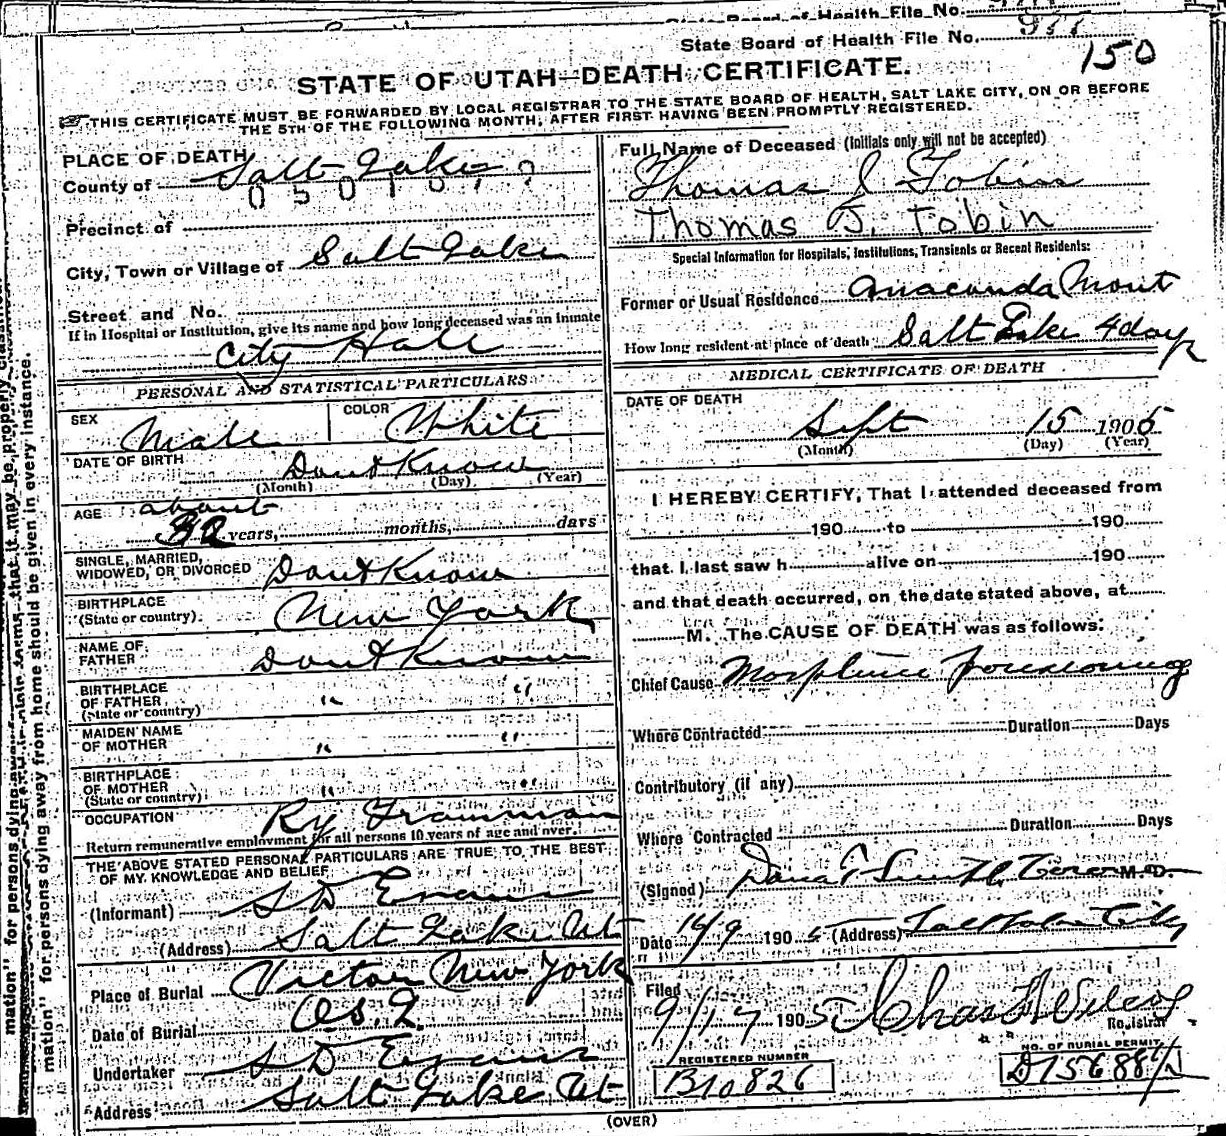 State Board of Health File No.
State Board of Health File No. 977
150
STATE OF UTAH—DEATH CERTIFICATE.
THIS CERTIFICATE MUST BE FORWARDED BY LOCAL REGISTRAR TO THE STATE BOARD OF HEALTH, SALT LAKE CITY, ON OR BEFORE
THE 5TH OF THE FOLLOWING MONTH, AFTER FIRST HAVING BEEN PROMPTLY REGISTERED.
PLACE OF DEATH
County of Salt Lake
Precinct of
City, Town or Village of Salt Lake
Street and No.
If in Hospital or Institution, give its name and how long deceased was an inmate
City Hall
PERSONAL AND STATISTICAL PARTICULARS
SEX Male
COLOR White
DATE OF BIRTH Dont Know
(Month) (Day) (Year)
AGE about
years, months, days
SINGLE, MARRIED,
WIDOWED, OR DIVORCED Dont Know
BIRTHPLACE
(State or country) New York
NAME OF
FATHER Dont Know
BIRTHPLACE
OF FATHER " "
(State or country)
MAIDEN NAME
OF MOTHER " "
BIRTHPLACE
OF MOTHER " "
(State or country)
OCCUPATION Ry Trainman
Return remunerative employment for all persons 10 years of age and over.
THE ABOVE STATED PERSONAL PARTICULARS ARE TRUE TO THE BEST
OF MY KNOWLEDGE AND BELIEF
(Informant) S D Evans
(Address) Salt Lake Ut
Place of Burial Victor New York
Date of Burial
Undertaker S D Evans
Address Salt Lake Ut
Full Name of Deceased (Initials only will not be accepted)
Thomas J Tobin
Thomas J. Tobin
Special Information for Hospitals, Institutions, Transients or Recent Residents:
Former or Usual Residence Anaconda Mont
How long resident at place of death Salt Lake 4 days
MEDICAL CERTIFICATE OF DEATH
DATE OF DEATH
Sept 15 1905
(Month) (Day) (Year)
I HEREBY CERTIFY, That I attended deceased from
190 to 190
that I last saw h alive on 190
and that death occurred, on the date stated above, at
M. The CAUSE OF DEATH was as follows:
Chief Cause Morphine poisoning
Where Contracted Duration Days
Contributory (if any)
Where Contracted Duration Days
(Signed) Dana T Smith M.D.
Date 16/9 1905 (Address) Salt Lake City
Filed
9/17 1905 Chas F Wilcox
Registrar
REGISTERED NUMBER
B10826
NO. OF BURIAL PERMIT
(OVER)
mation" for persons dying away from home should be given in every instance.